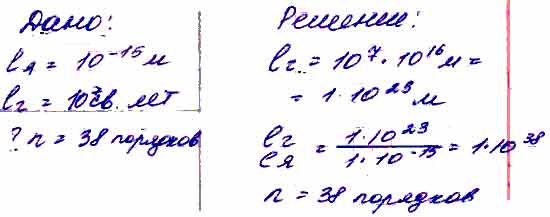 Дано:
lя = 10⁻¹⁵ м
lг = 10⁷ св. лет
? n = 38 порядков
Решение:
lг = 10⁷ · 10¹⁶ м =
= 1 · 10²³ м
lг / lя = 1·10²³ / 1·10⁻¹⁵ = 1·10³⁸
n = 38 порядков